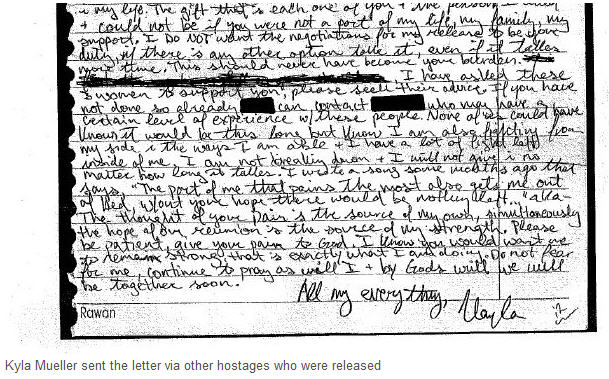 i my life. The gift that is each one of you + the person
+ could not be if you were not a part of my life, my family, my
support. I DO NOT want the negotiations for my release to be your
duty, if there is any other option take it, even if it takes
more time. This should never have become your burden.
I have asked these
women to support you; please seek their advice. If you have
not done so already can contact who may have a
certain level of experience w/ these people. None of us could have
known it would be this long but know I am also fighting from
my side i the ways I am able + I have a lot of fight left
inside of me. I am not breaking down + I will not give i no
matter how long it takes. I wrote a song some months ago that
says, "The part of me that pains the most also gets me out
of bed, w/out your hope there would be nothing left..." aka-
The thought of your pain is the source of my own, simultaneously
the hope of our reunion is the source of my strength. Please
be patient, give your pain to God. I know you would want me
to remain strong, that is exactly what I am doing. Do not fear
for me, continue to pray as will I + by God's will we will
be together soon.
All my everything,
Kayla
Rawan
Kyla Mueller sent the letter via other hostages who were released